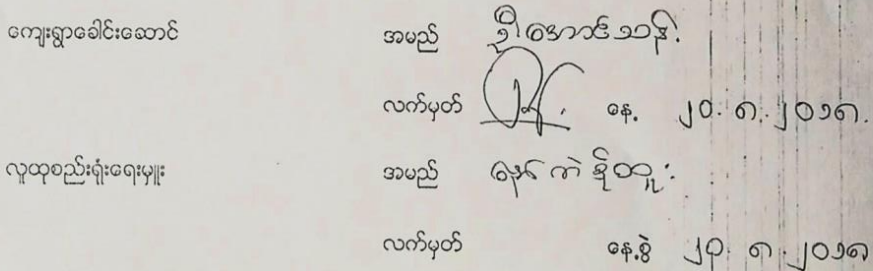 ကျေးရွာခေါင်းဆောင် အမည် ဦအောင်သန်း
လက်မှတ် နေ့ ၂၀.၈.၂၀၁၈.
လူထုစည်းရုံးရေးမှူး အမည်
လက်မှတ် နေ့စွဲ ၂၀.၈.၂၀၁၈